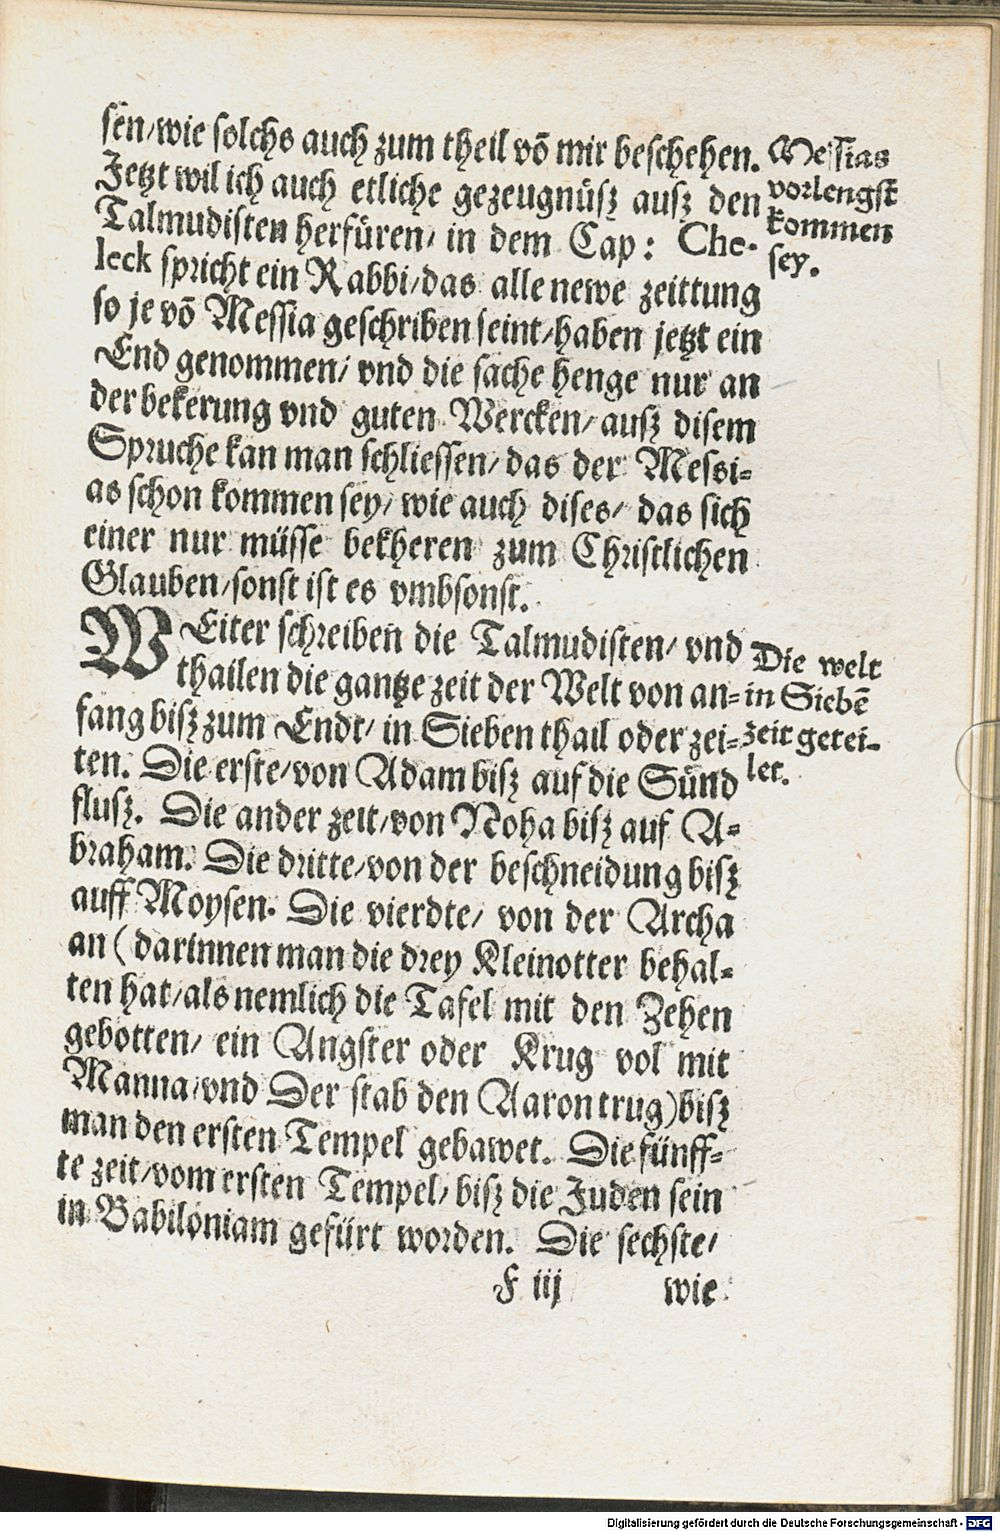 sen/wie solchs auch zum theil võ mir beschehen.
Jetzt wil ich auch etliche gezeugnüsz ausz den
Talmudisten herfüren/ in dem Cap: Che-
leck spricht ein Rabbi/das alle newe zeittung
so je võ Messia geschriben seint/haben jetzt ein
End genommen/ vnd die sache henge nur an
der bekerung vnd guten Wercken/ausz disem
Spruche kan man schliessen/ das der Messi-
as schon kommen sey/ wie auch dises/ das sich
einer nur müsse bekheren zum Christlichen
Glauben/sonst ist es vmbsonst.
Messias
vorlengst
kommen
sey.
WEiter schreiben die Talmudisten/ vnd
thailen die gantze zeit der Welt von an-
fang bisz zum Endt/ in Sieben thail oder zei-
ten. Die erste/von Adam bisz auf die Sünd
flusz. Die ander zeit/von Noha bisz auf A-
braham. Die dritte/von der beschneidung bisz
auff Moysen. Die vierdte/ von der Archa
an (darinnen man die drey Kleinotter behal-
ten hat/als nemlich die Tafel mit den Zehen
gebotten/ ein Angster oder Krug vol mit
Manna/vnd Der stab den Aaron trug)bisz
man den ersten Tempel gebawet. Die fünff-
te zeit/vom ersten Tempel/ bisz die Juden sein
in Babiloniam gefürt worden. Die sechste/
Die welt
in Siebẽ
zeit getei-
let.
F iij wie
Digitalisierung gefördert durch die Deutsche Forschungsgemeinschaft - DFG